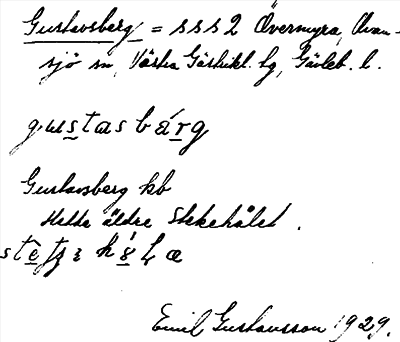 Gustavsberg = sss 2 Övermyra, Ovan-
sjö sn, Västra Gästrikl. hg, Gävleb. l.
gustasbárg
Gustavsberg kb
Hette äldre Stekehålet.
Emil Gustavsson 1929.